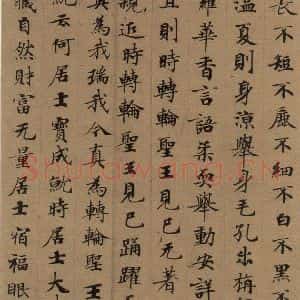 長不短不麁不細不白不黑不
溫夏則身涼舉身毛孔出栴
羅華香言語柔耎舉動安詳
宜則時轉輪聖王見已无著
親近時轉輪聖王見已踊躍
真為我瑞我今真為轉輪聖王
統云何居士寶成就時居士大
藏自然財富无量居士宿福眼